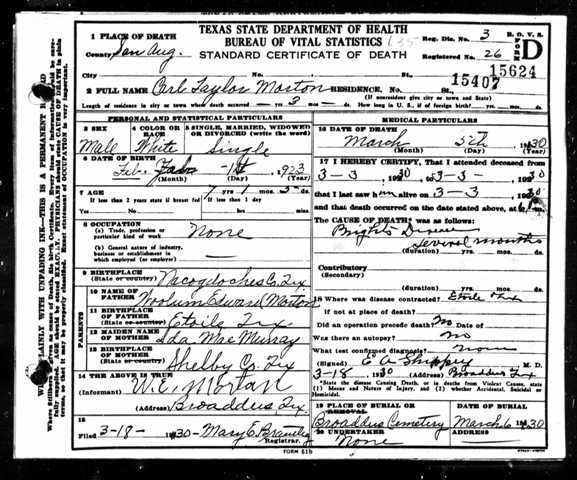 TEXAS STATE DEPARTMENT OF HEALTH
BUREAU OF VITAL STATISTICS
STANDARD CERTIFICATE OF DEATH
Reg. Dis. No. 3 B. O. V. S.
Registered No. 26
FORM D
15407 15624
1 PLACE OF DEATH
County San Aug.
City No. St.,
2 FULL NAME Carl Taylor Morton RESIDENCE. No. St.,
(If nonresident give city or town and State)
Length of residence in city or town where death occurred yrs 3 mos ds. How long in U. S., if of foreign birth? yrs. mos. ds.
PERSONAL AND STATISTICAL PARTICULARS
3 SEX
Male
4 COLOR OR RACE
White
5 SINGLE, MARRIED, WIDOWED OR DIVORCED (write the word)
Single
6 DATE OF BIRTH
Feb. 1st 1923
(Month) (Day) (Year)
7 AGE
7 yrs 1 mos ds.
If less than 2 years state if breast fed
Yes No
If less than 1 day
hrs. min.
8 OCCUPATION
(a) Trade, profession or particular kind of work None
(b) General nature of industry, business or establishment in which employed (or employer)
9 BIRTHPLACE
(State or country) Nacogdoches Co. Tex
PARENTS
10 NAME OF FATHER Woolum Edward Morton
11 BIRTHPLACE OF FATHER
(State or country) Etoile Tex
12 MAIDEN NAME OF MOTHER Ida Mae Murray
13 BIRTHPLACE OF MOTHER
(State or country) Shelby Co. Tex
14 THE ABOVE IS TRUE
(Informant) W. E. Mortan
(Address) Broaddus Tex.
15
Filed 3-18- 1930 Mary E. Brantley
Registrar.
MEDICAL PARTICULARS
16 DATE OF DEATH
March 5th 1930
(Month) (Day) (Year)
17 I HEREBY CERTIFY, That I attended deceased from
3-3 1930 to 3-3 1930
that I last saw him alive on 3-3 1930
and that death occurred on the date stated above, at
The CAUSE OF DEATH was as follows:
Brights Disease
Several months
(duration) yrs. mos. ds.
Contributory
(Secondary)
(duration) yrs. mos. ds.
18 Where was disease contracted? Etoile Tex
if not at place of death?
Did an operation precede death? No Date of
Was there an autopsy? No
What test confirmed diagnosis? None
(Signed) E. A. Shippey M. D.
3-18, 1930 (Address) Broaddus Tex
*State the disease Causing Death, or in deaths from Violent Causes, state (1) Means and Nature of Injury, and (2) whether Accidental, Suicidal or Homicidal.
19 PLACE OF BURIAL OR REMOVAL
Broaddus Cemetery
DATE OF BURIAL
March 6 1930
20 UNDERTAKER
None
FORM 51b